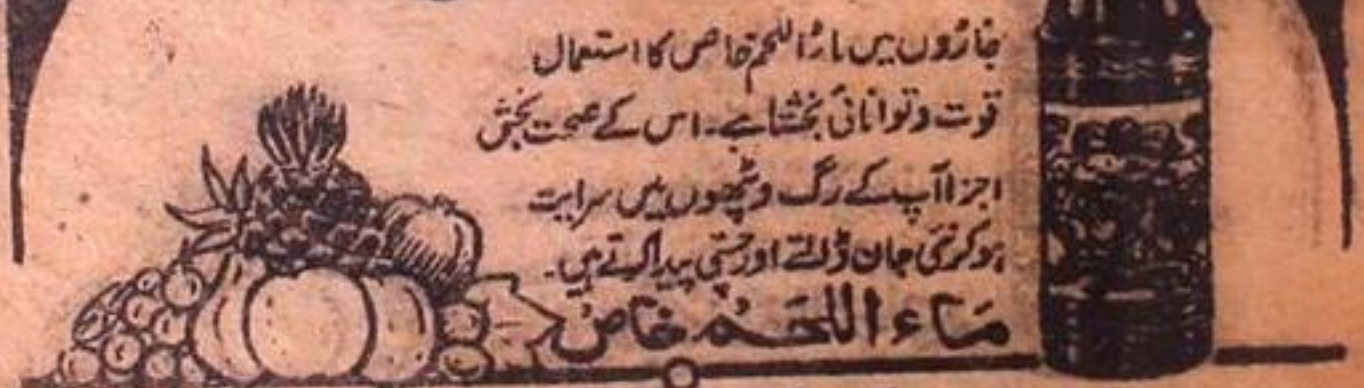 جاڑوں میں ماءُ اللحم خاص کا استعمال
قوت و توانائی بخشتا ہے۔ اس کے صحت بخش
اجزا آپ کے رگ و پٹھوں میں سرایت
ہوکر نئی جان ڈالتے اور چستی پیدا کرتے ہیں۔
مَاء اللحَم خاصُ